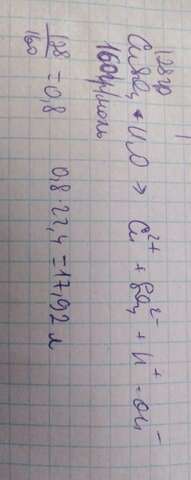 128гр
CuSO₄ + H₂O → Cu²⁺ + SO₄²⁻ + H⁺ - OH⁻
160гр/моль
128/160 = 0,8 0,8·22,4 = 17,92 л